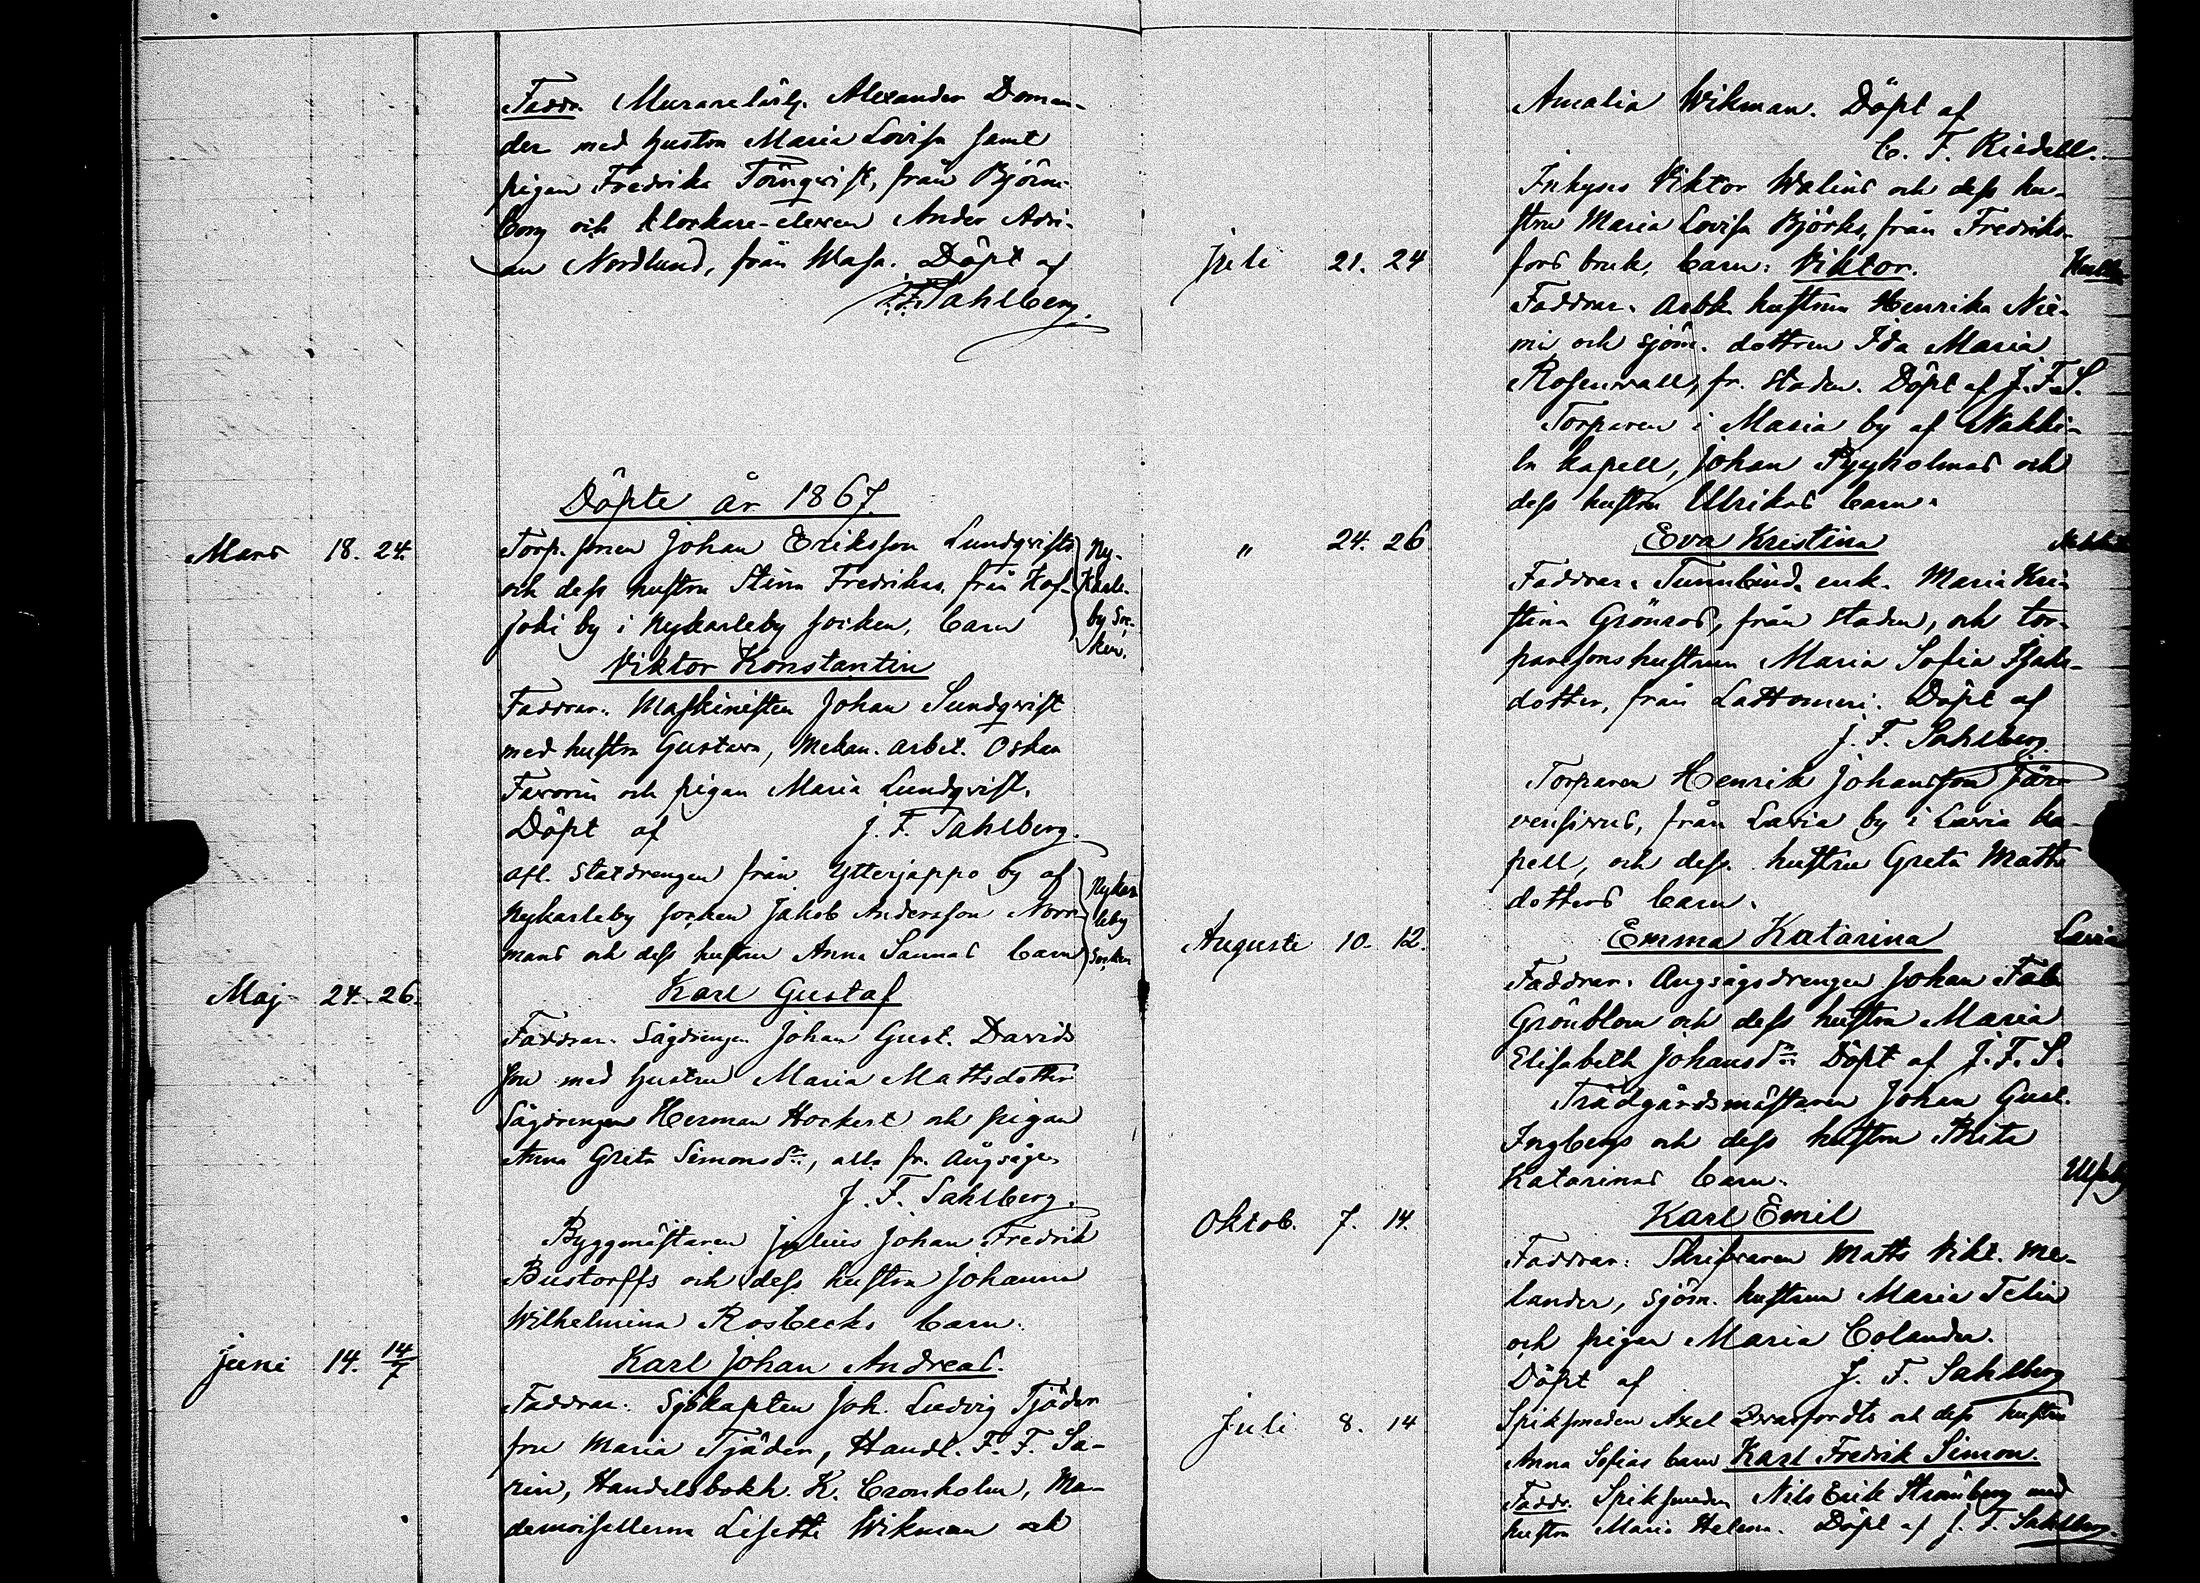 Faddr. Murarelärl. Alexander Doman-
der med hustru Maria Lovisa samt
pigan Fredrika Törnqvist, från Björne-
borg och klockare-eleven Ander Adri-
an Nordlund, från Wasa. Döpt af
J. F. Sahlberg.
Döpte år 1867.
Mars 18. 24. Torp. sonen Johan Eriksson Lundqvists
och dess hustru Stina Fredrikas, från Kof-
joki by i Nykarleby socken, barn
Ny-
Karle-
by Soc-
ken.
Viktor Konstantin
Faddrar: Maskinisten Johan Sundqvist
med hustru Gustava, Mekan. arbet. Oskar
Favorin och pigan Maria Lundqvist.
Döpt af J. F. Sahlberg.
Afl. Statdrengen från Ytterjeppo by af
Nykarleby socken Jakob Andersson Norr-
mans och dess hustru Anna Sannas barn
Nykar
leby
Socken
Maj 24. 26. Karl Gustaf
Faddrar: Sågdrengen Johan Gust. Davids
son med hustru Maria Mattsdotter
Sågdrengen Herman Hockert och pigan
Anna Greta Simonsdr., alla fr. Ångsågen
J. F. Sahlberg.
Byggmästaren Julius Johan Fredrik
Bustorffs och dess hustru Johanna
Wilhelmina Rosbecks barn.
Juni 14. 14/7 Karl Johan Andreas.
Faddrar: Sjökapten Joh. Ludvig Tjäder
fru Maria Tjäder, Handl. F. F. Sa-
rin, Handelsbokh. K. Cronholm, Ma-
demoisellerna Lisette Wikman och
Amalia Wikman. Döpt af
C. F. Riedell.
Inhyses Viktor Walins och dess hu-
stru Maria Lovisa Björks, från Fredriks-
Juli 21. 24 fors bruk, barn: Viktor.
Faddrar: Arbk. hustrun Henrika Nie-
mi och sjöm. dottren Ida Maria
Rosenvall, fr. staden. Döpt af J. F. S.
Torparen i Masia by af Nakki-
la kapell, Johan Pyyholmas och
dess hustru Ulrikas barn.
" 24. 26 Eva Kristina
Faddrar: Tunnbind. enk. Maria Kri-
stina Grönros, från staden, och tor-
paresonshustrun Maria Sofia Isaks-
dotter, från Lattomeri. Döpt af
J. F. Sahlberg.
Torparen Henrik Johansson Järv
vensivus, från Lavia by i Lavia ka-
pell, och dess hustru Greta Matts
dotters barn.
Augusti 10. 12. Emma Katarina Lavia
Faddrar: Ångsågsdrengen Johan Fab.
Grönblom och dess hustru Maria
Elisabeth Johansdr. Döpt af J. F. S.
Trädgårdsmästaren Johan Gust.
Ingbergs och dess hustru Brita
Katarinas barn. Ulfsby
Oktob. 7. 14. Karl Emil
Faddrar: Skrifvaren Matts Vikt. Me-
lander, sjöm. hustrun Maria Telin
och pigan Maria Colander.
Döpt af J. F. Sahlberg
Juli 8. 14 Spiksmeden Axel Dvarfordts och dess hustru
Anna Sofias barn Karl Fredrik Simon.
Faddr. Spiksmeden Nils Erik Strömberg med
hustru Maria Helena. Döpt af J. F. Sahlberg.